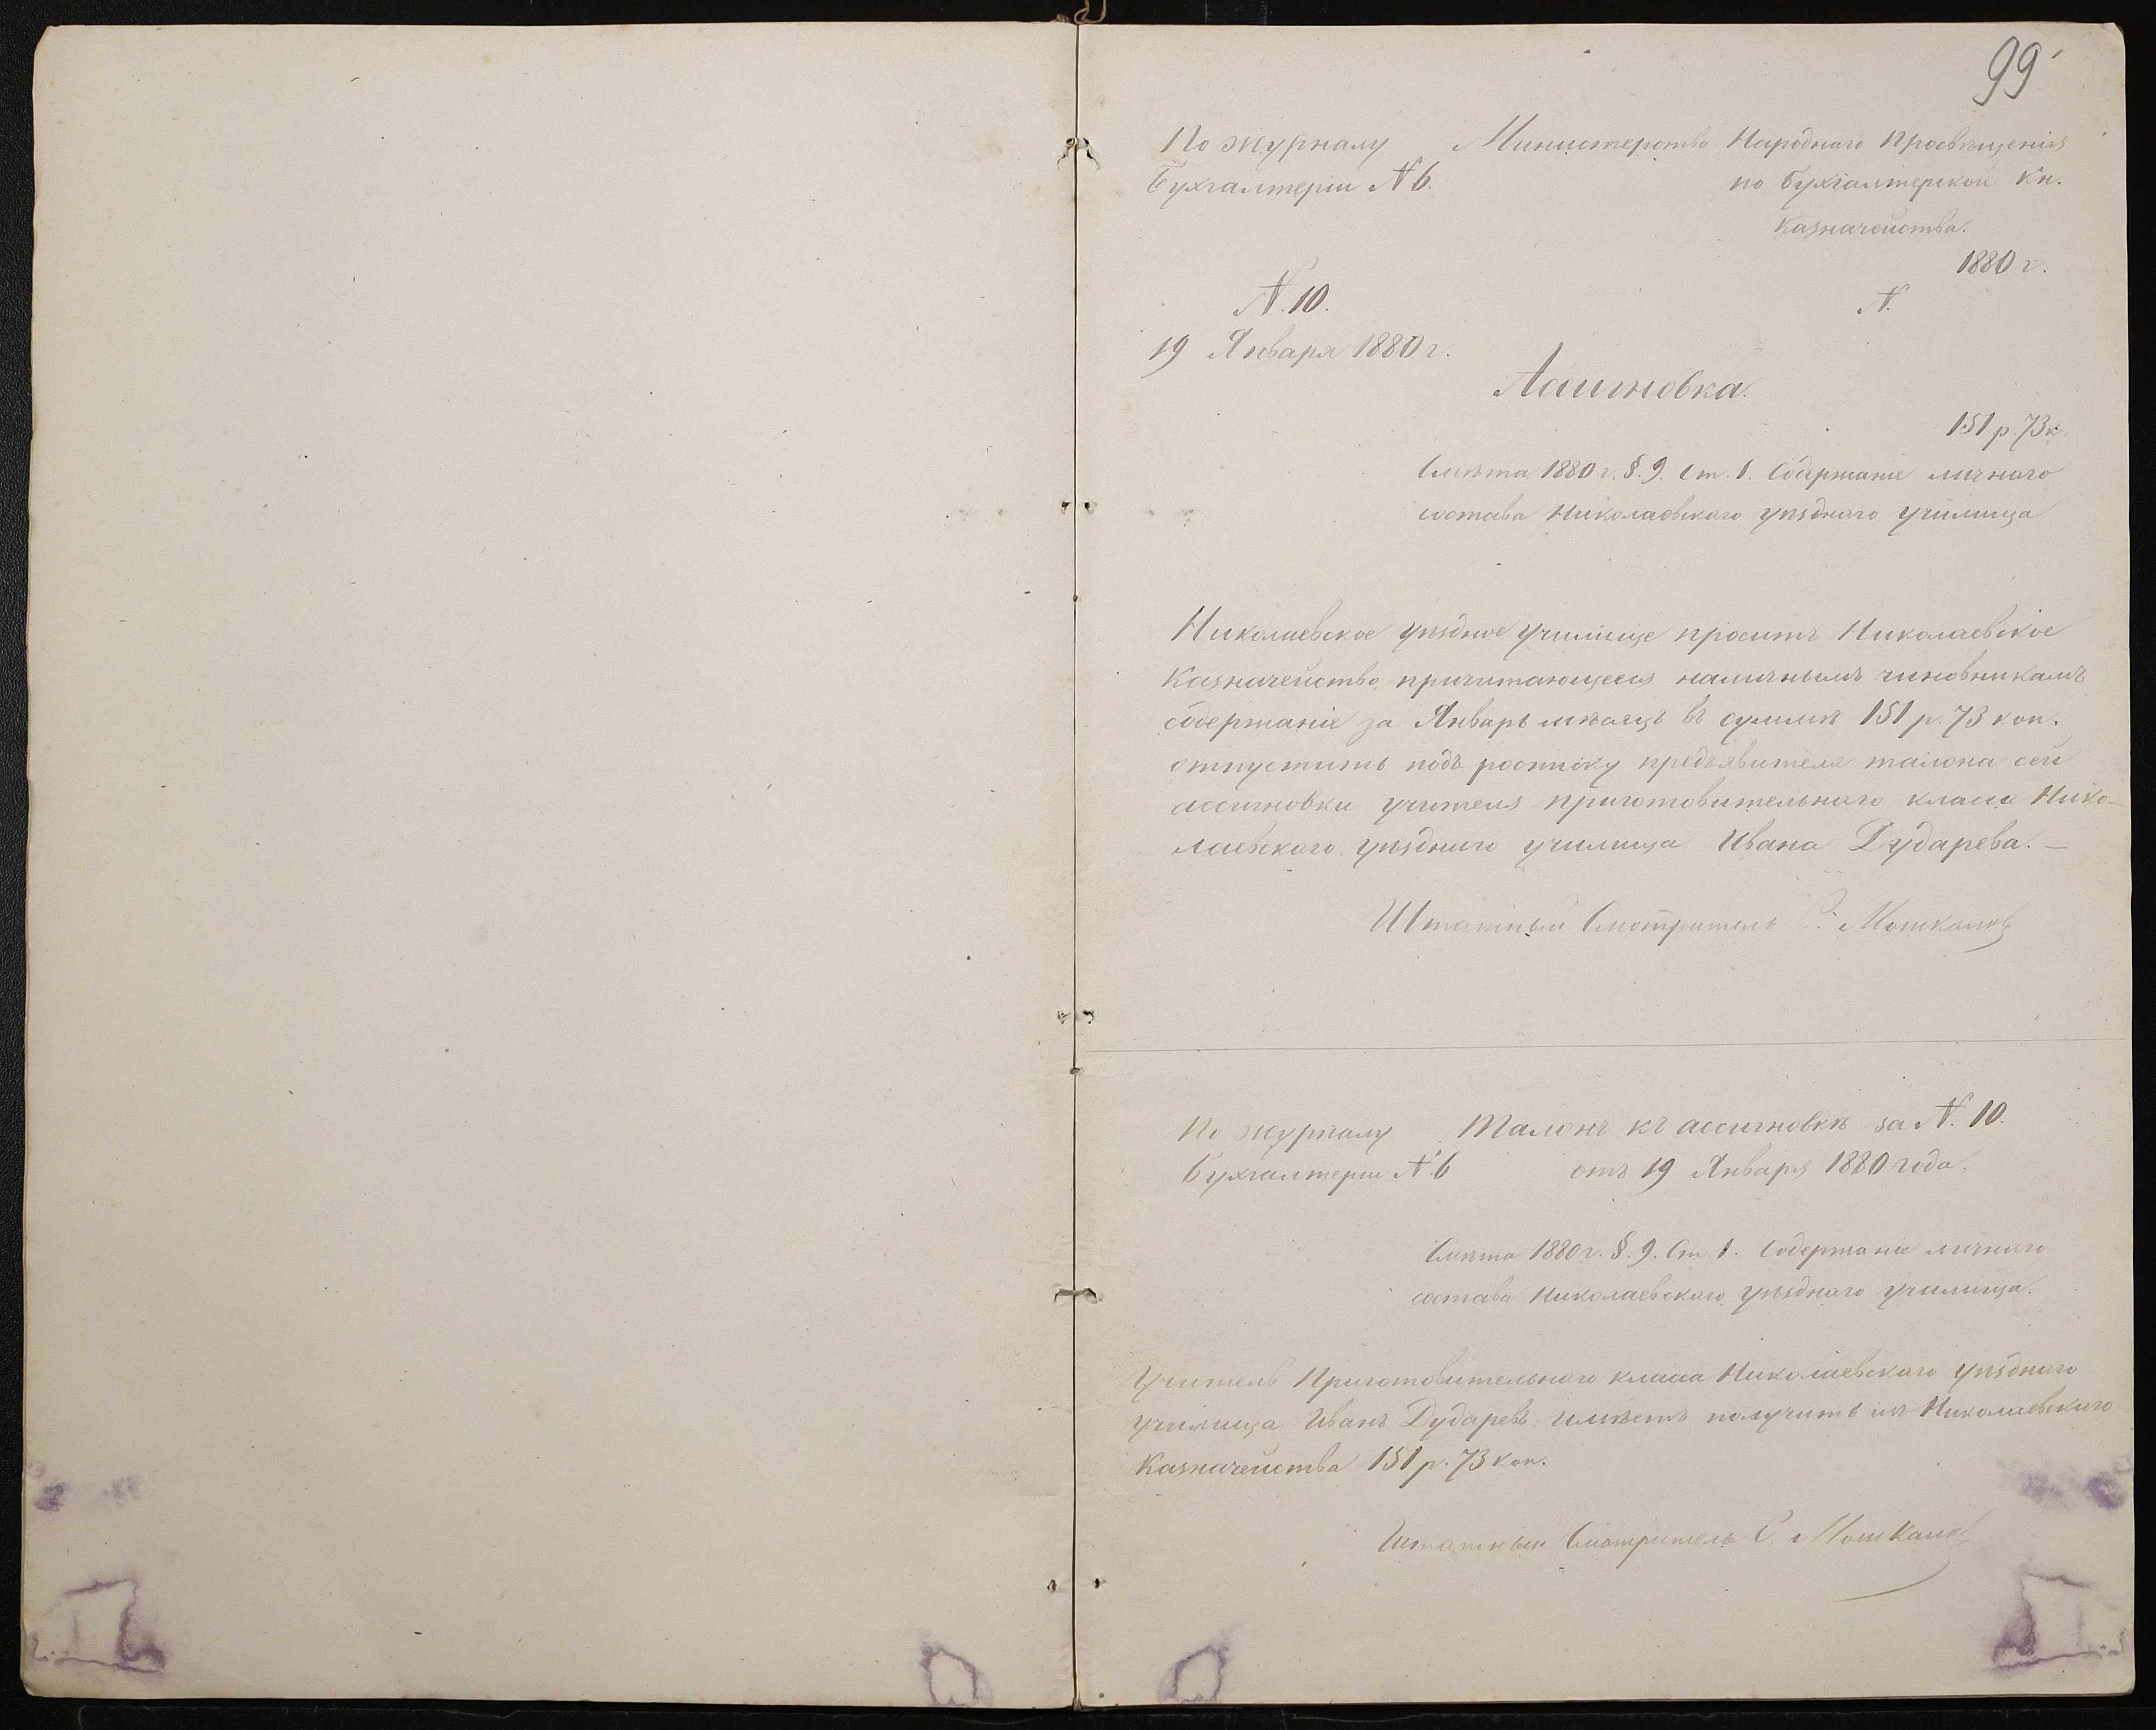 99
По журналу
Бухгалтеріи № 6.
Министерство Народнаго Просвѣщенія
по бухгалтерской кн.
Казначейства.
1880 г.
№ 10.
№
19 Января 1880 г.
Ассигновка.
151 р. 73 к.
Смѣта 1880 г. §. 9. Ст. 1. Содержаніе личнаго
состава Николаевскаго уѣзднаго училища
Николаевское уѣздное училище проситъ Николаевское
Казначейство, причитающееся наличнымъ чиновникамъ
содержаніе за Январь мѣсяцъ въ суммѣ 151 р. 73 коп.
отпустить подъ росписку предъявителя талона сей
ассигновки учителя приготовительнаго класса Нико-
лаевскаго уѣзднаго училища Ивана Дударева. —
Штатный Смотритель С. Мошкалов
По журналу
Бухгалтеріи № 6
Талонъ къ ассигновкѣ за № 10.
отъ 19 Января 1880 года.
Смѣта 1880 г. §. 9. Ст. 1. Содержаніе личнаго
состава Николаевскаго уѣзднаго училища.
Учитель Приготовительнаго класса Николаевскаго уѣзднаго
училища Иванъ Дударевъ имѣетъ получить изъ Николаевскаго
Казначейства 151 р. 73 коп.
Штатный Смотритель С. Мошкалов